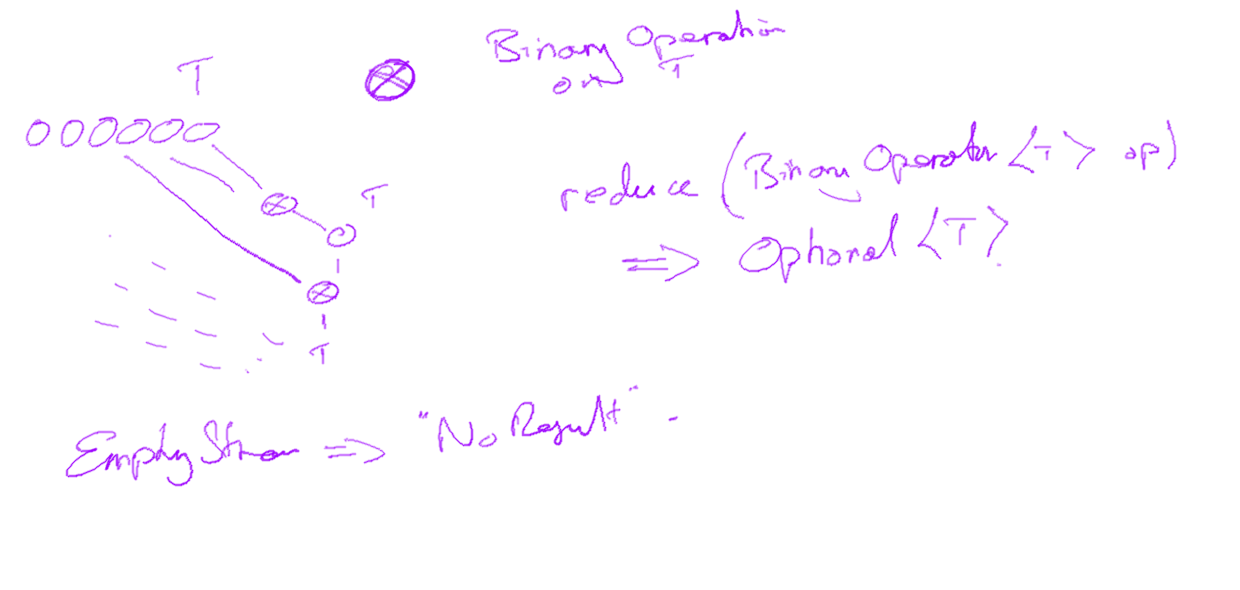 Binary Operation
on T
T
reduce (Binary Operator <T> op)
T
=> Optional <T>
T
Empty Stream => "No Result" -